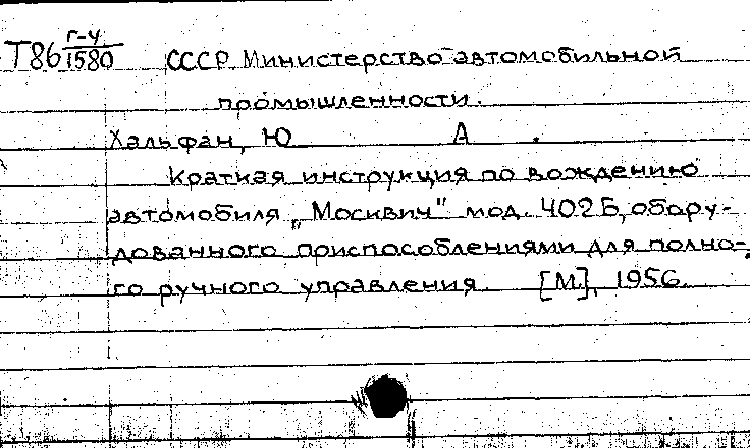 Т86 г-4/1580 СССР Министерство автомобильной
промышленности.
Хальфан, Ю А .
Краткая инструкция по вождению
автомобиля „Москвич" мод. 402Б, обору-
дованного приспособлениями для полно-
го ручного управления. [М.], 1956.